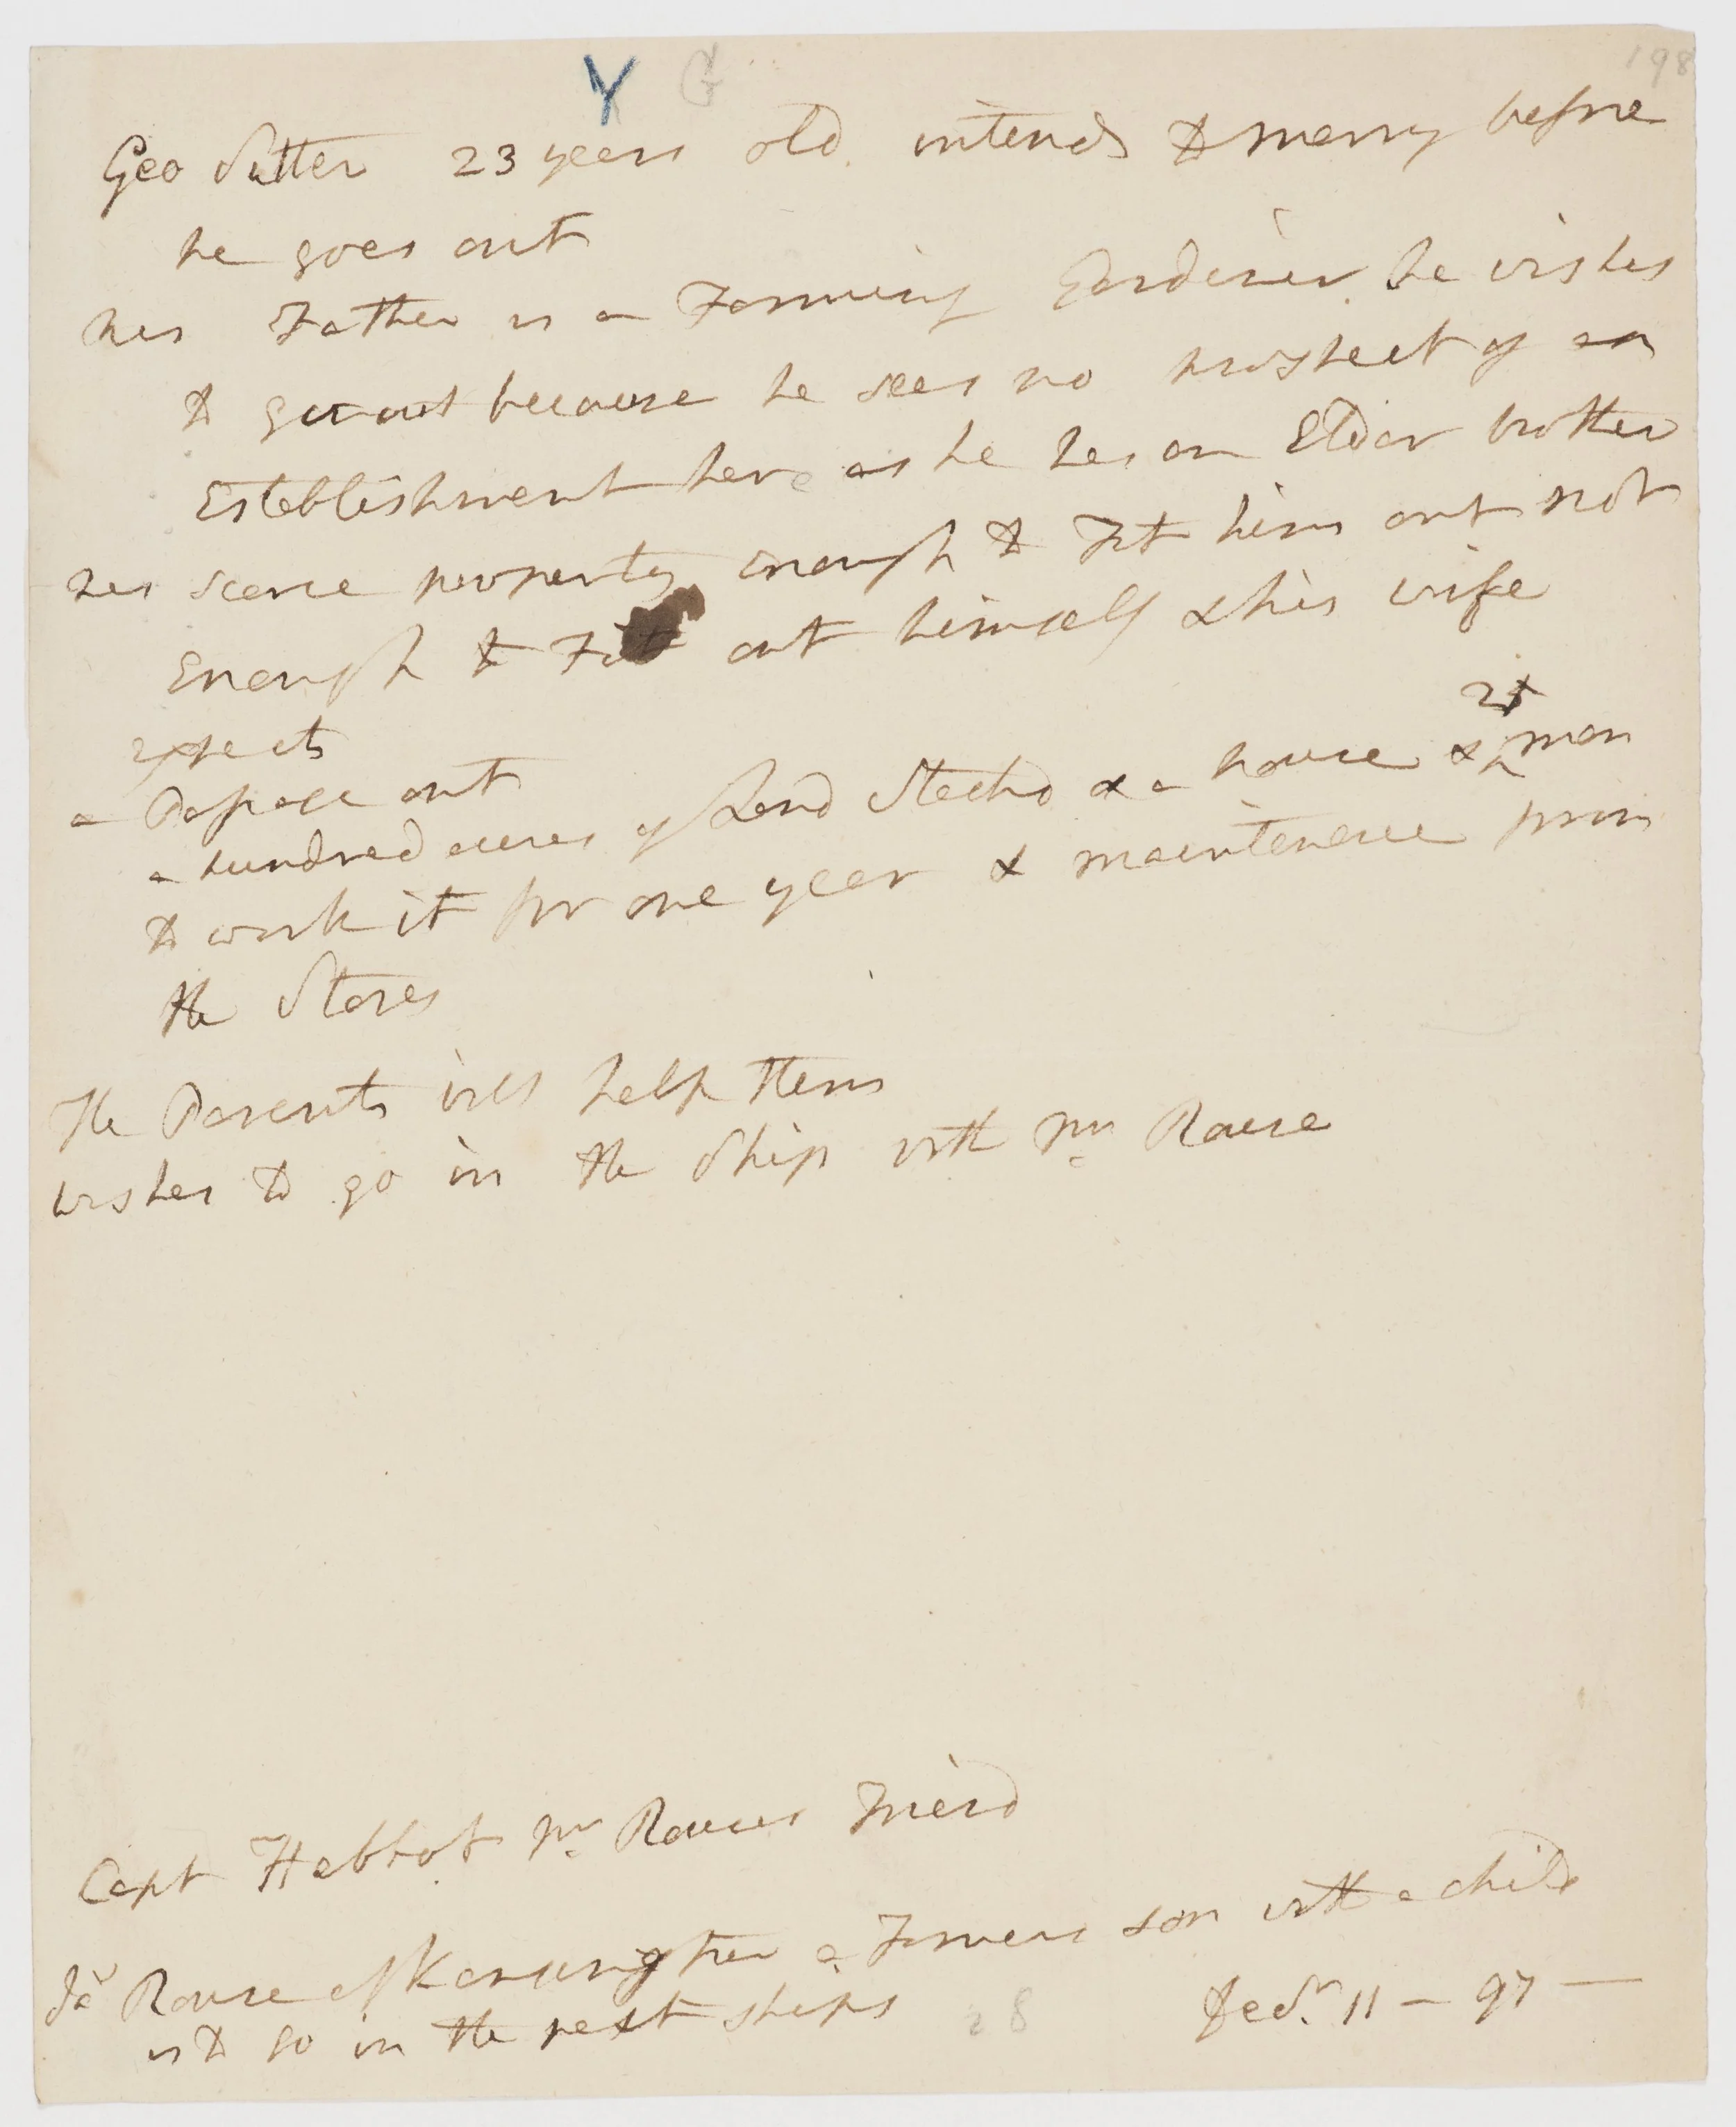 198
Y G
Geo Sutter 23 years old. intends to marry before
he goes out
his Father is a Farming Gardiner. he wishes
to go out because he sees no prospect of an
Establishment here as he has an Elder brother
has scarce property enough to Fit him out not
Enough to Fitt out himself & his wife
expects
a Passage out
a hundred acres of Land Stockd & a house & 2 men
to work it for one year & maintenance from
the Stores
The Parents will help them
wishes to go in the Ship with Mr Rouse
Capt Mr Rouses Friend
Rouse of a Farmers son with a child
is to go in the next ships
28
Decr. 11 — 97 —